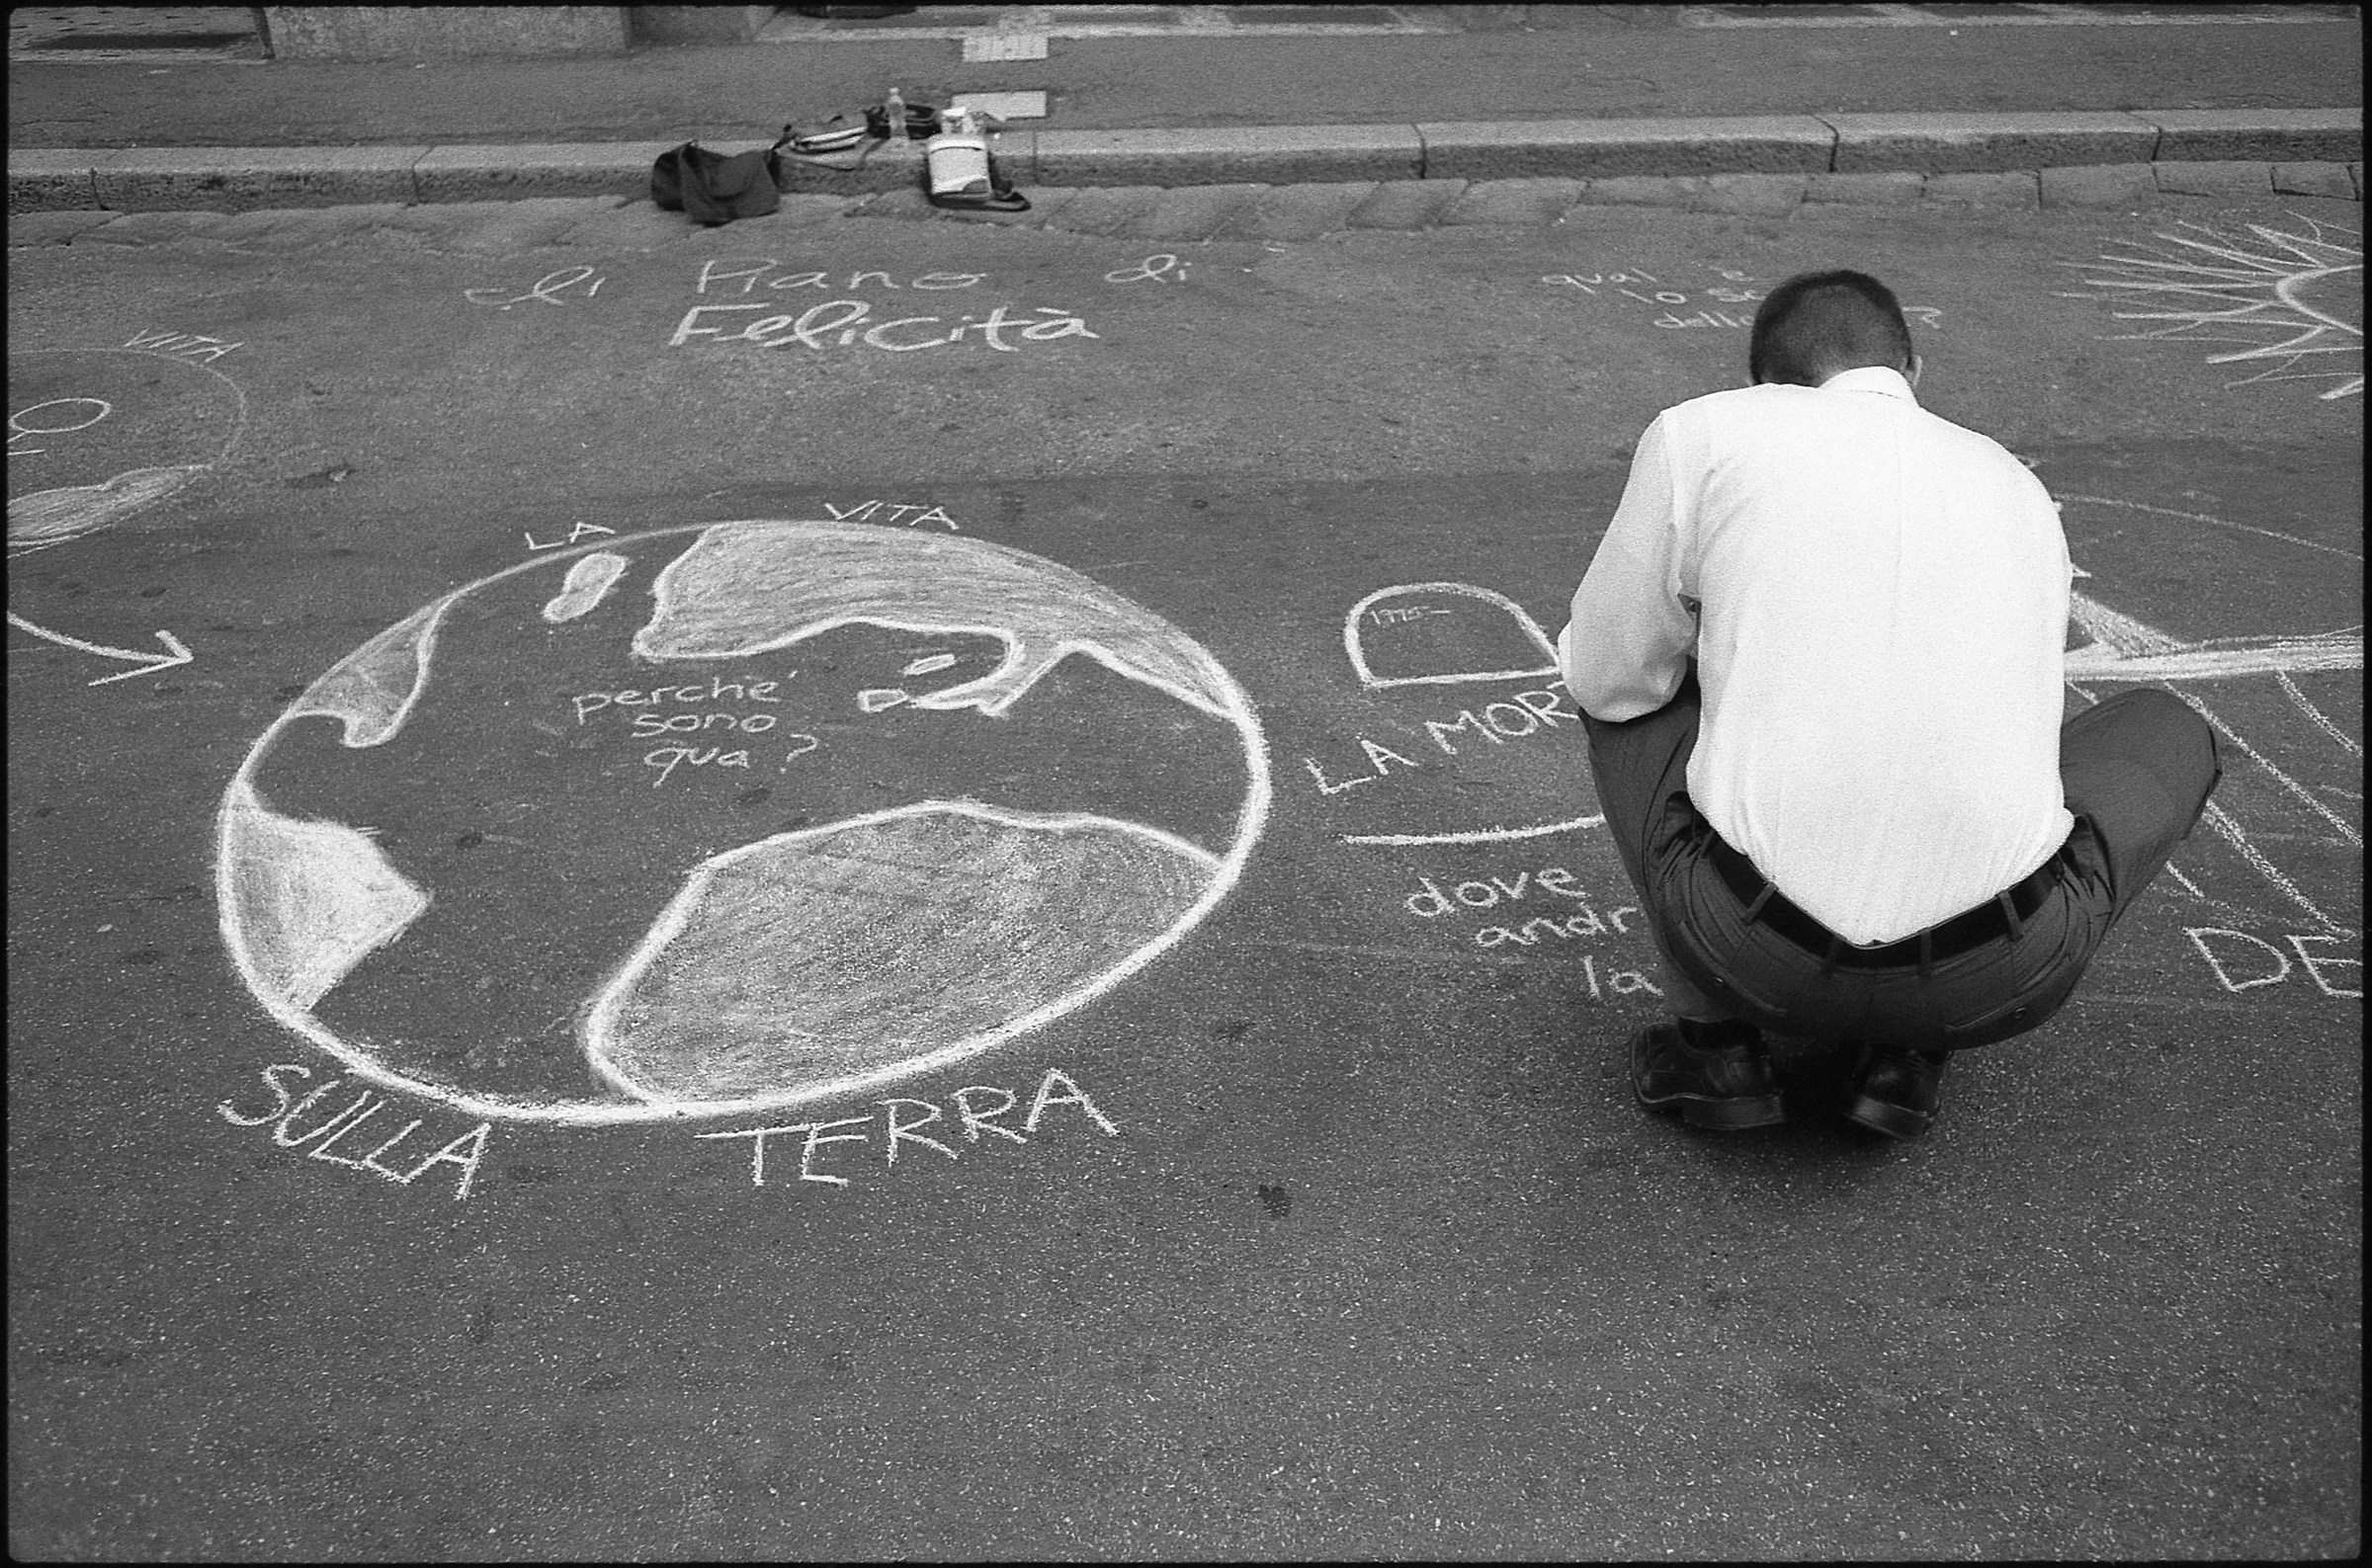 eli Piano di
Felicità
qual è
lo sc
della ?
VITA
LA VITA
perche'
sono
qua?
SULLA TERRA
LA MORT
dove
andr
la
DE